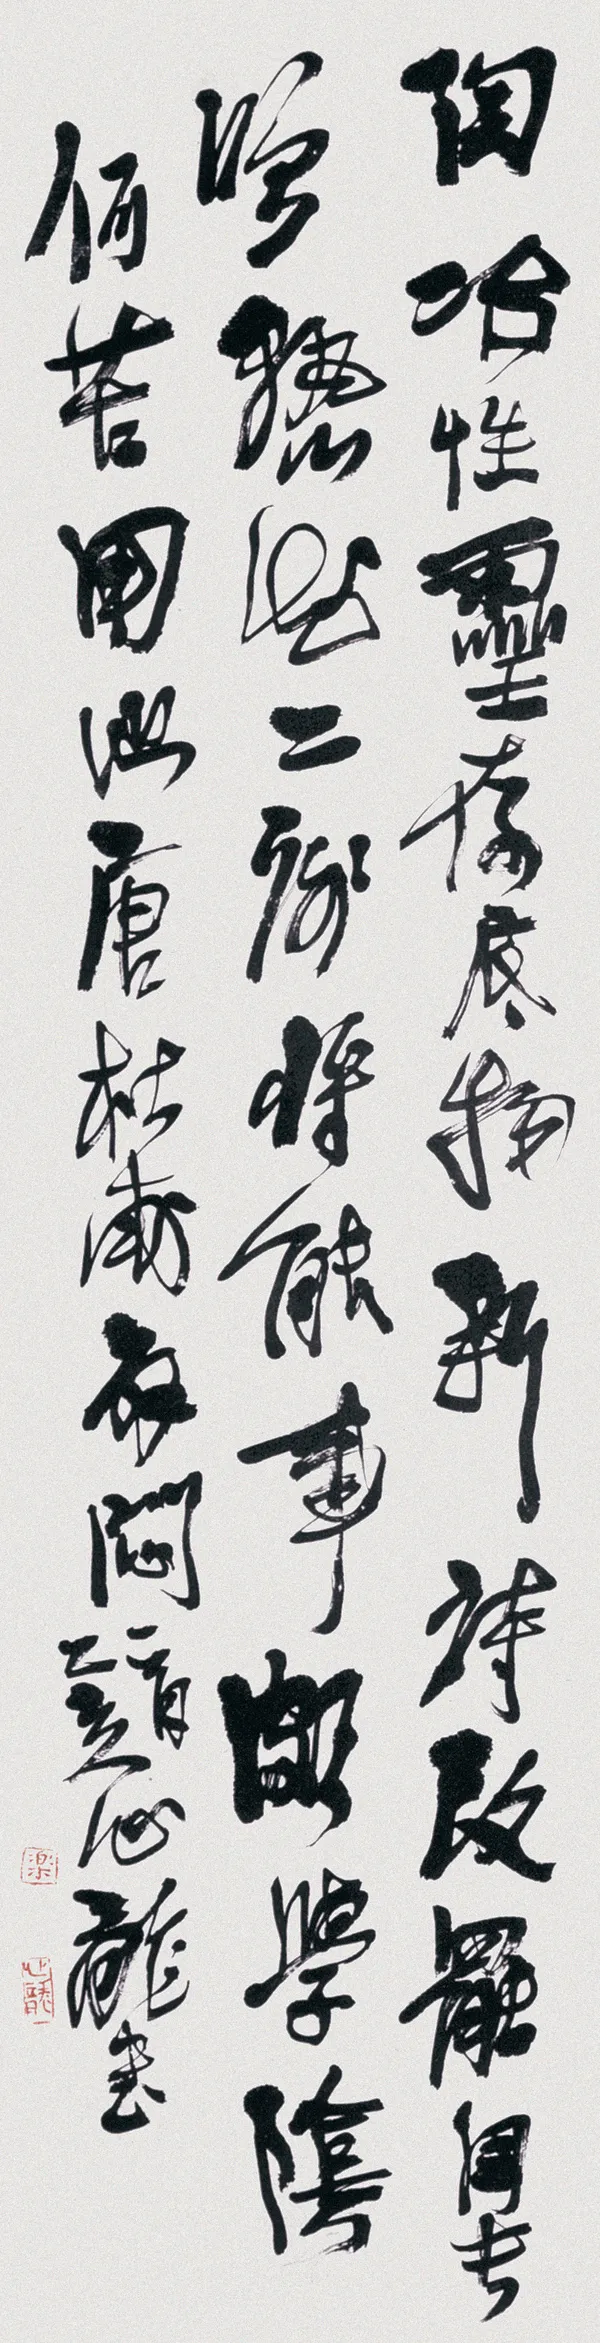 陶冶性靈存底物新詩改罷自長
吟熟知二謝將能事頗學陰
何苦用心唐杜甫解悶一首乙亥心龍書